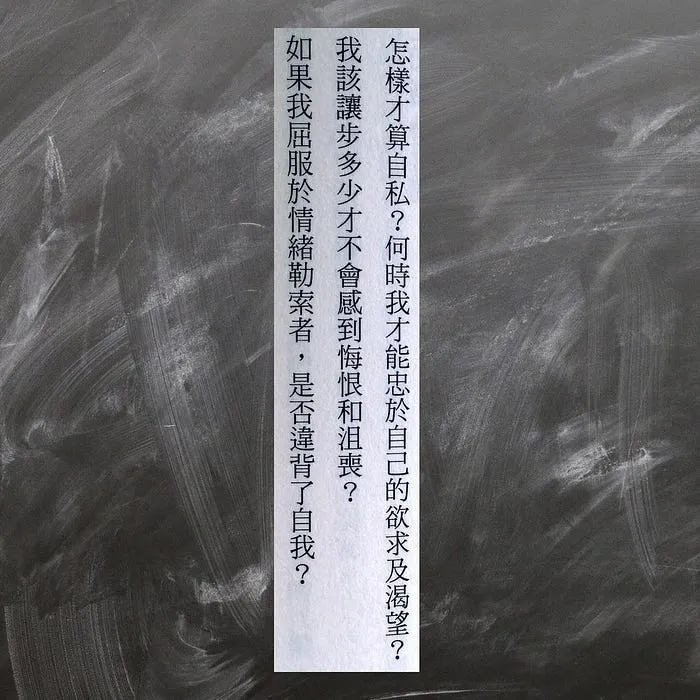 怎樣才算自私？何時我才能忠於自己的欲求及渴望？
我該讓步多少才不會感到悔恨和沮喪？
如果我屈服於情緒勒索者，是否違背了自我？